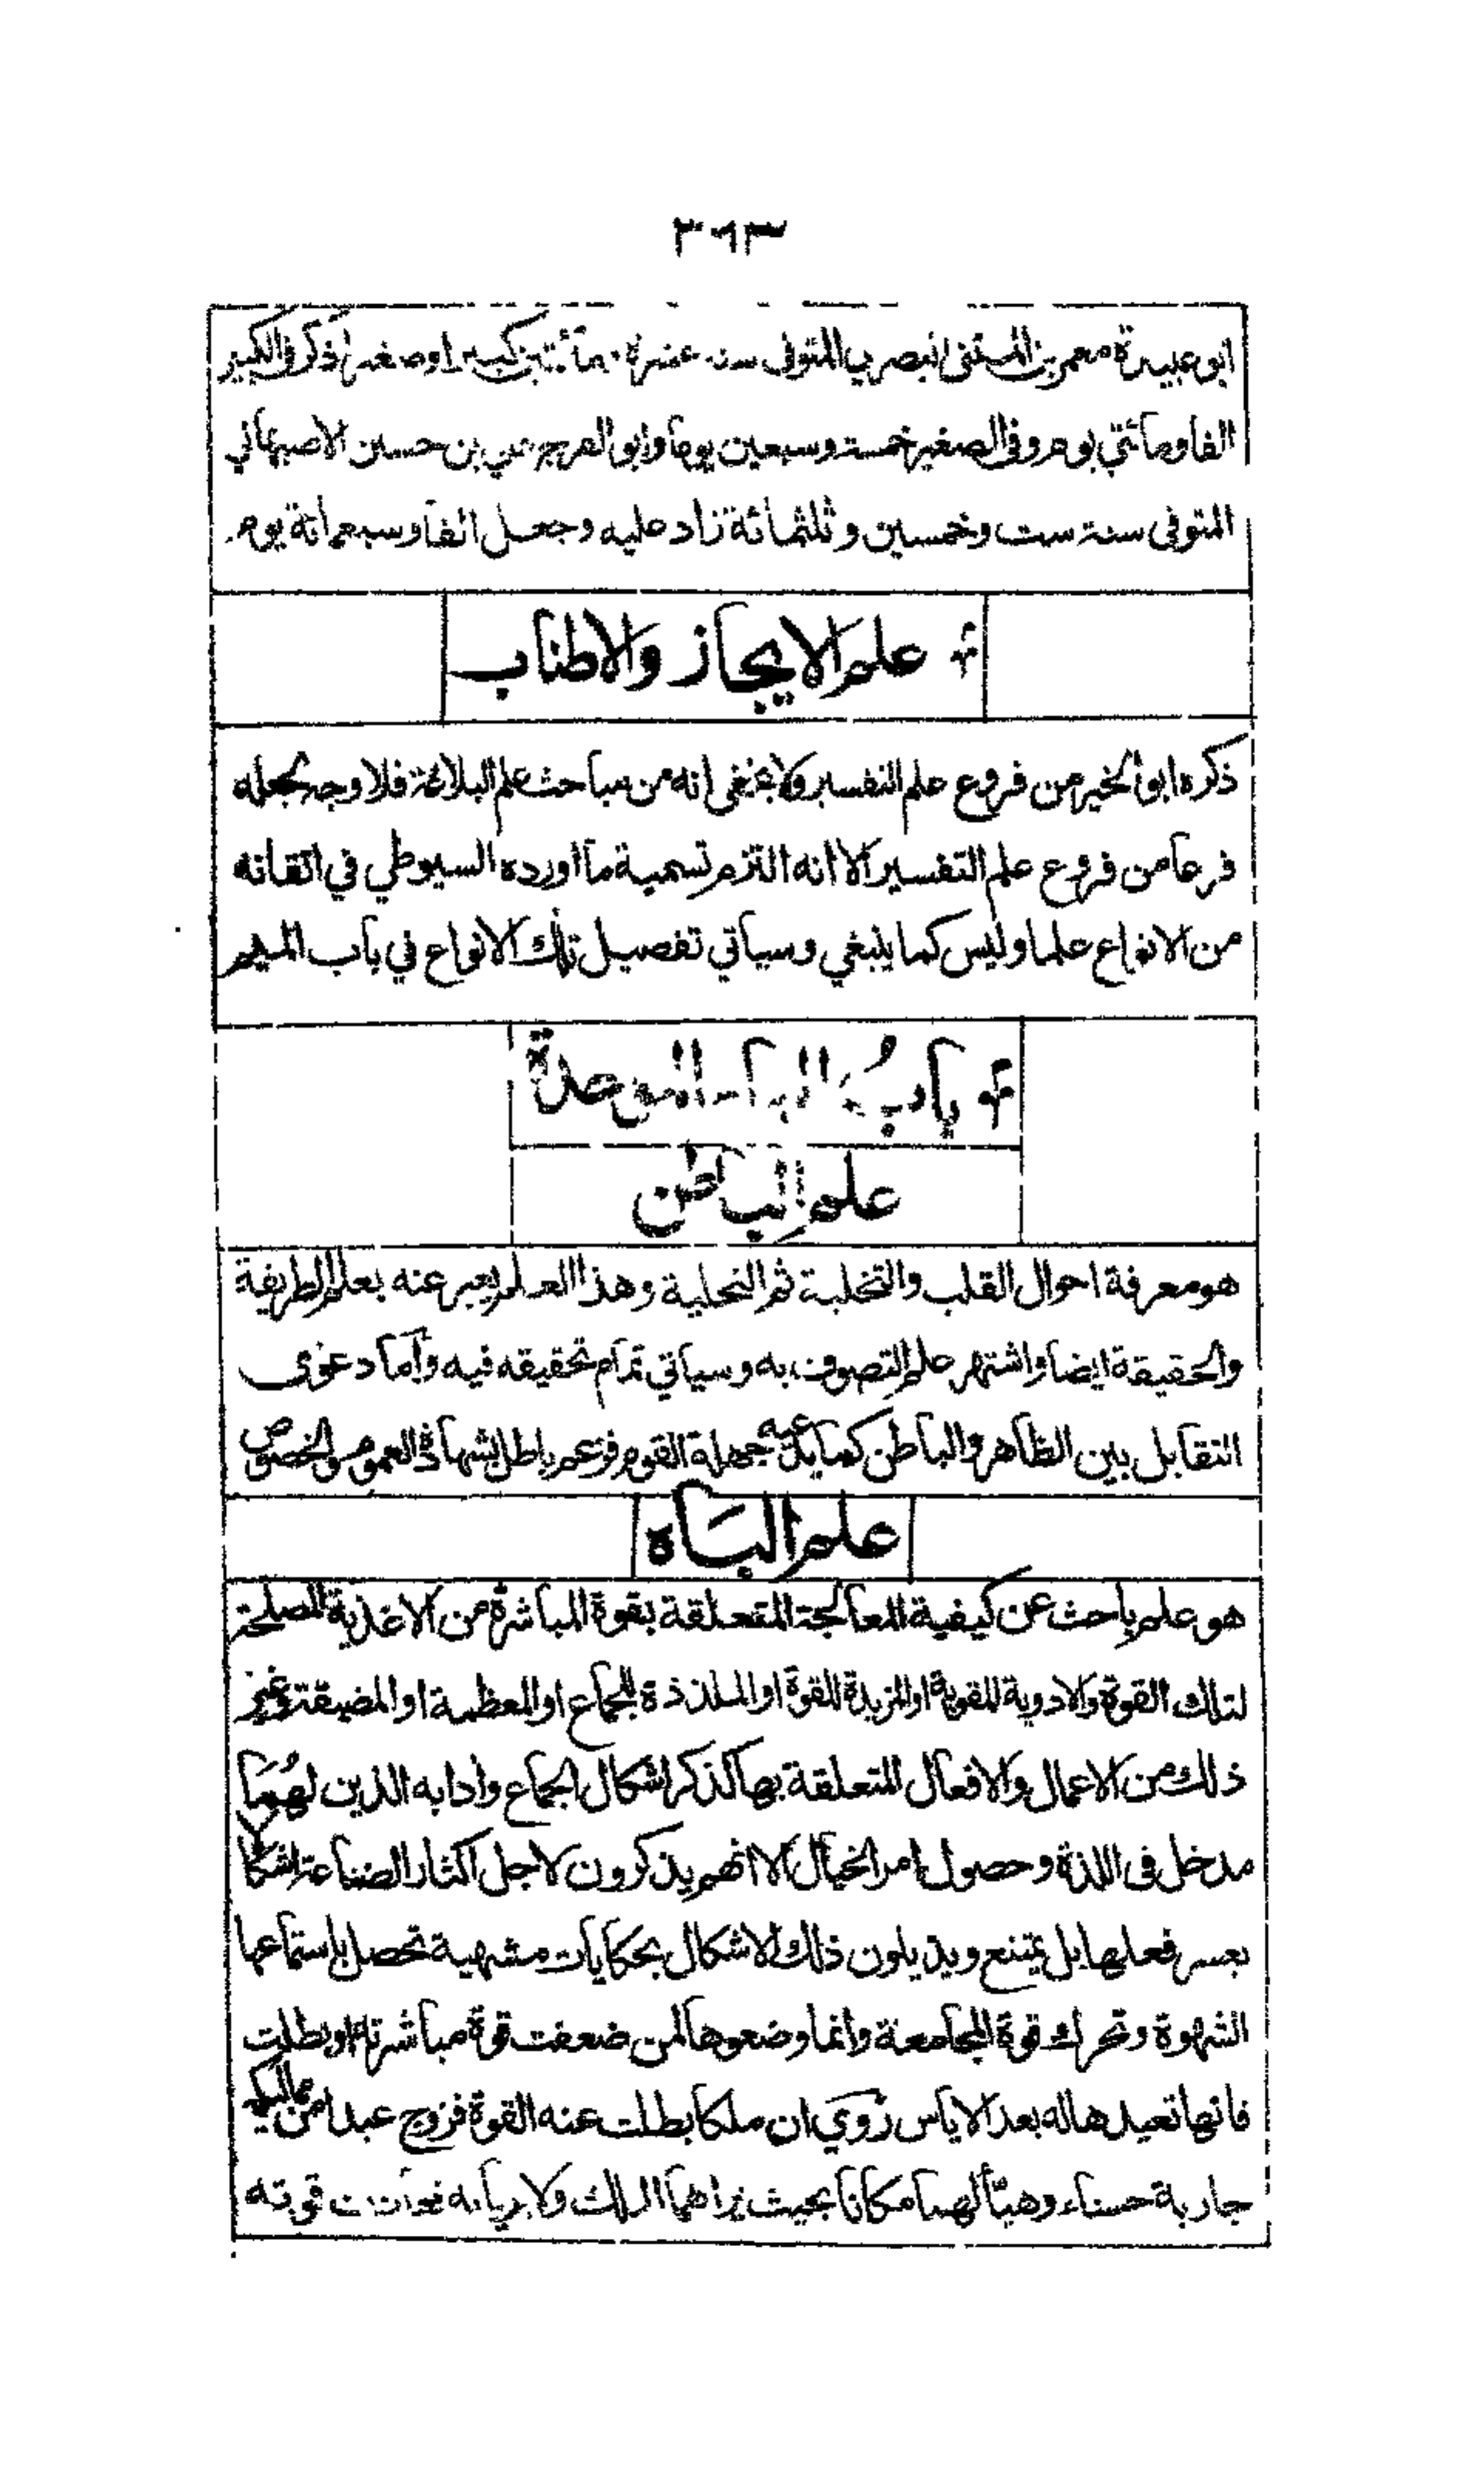 ٣٦٣
ابو عبيدة معمر بن المثنى البصري المتوفى سنة عشرة ومائتين كبيرا وصغيرا ذكر في الكبير
الفا ومائتي يوم وفي الصغير خمسة وسبعين يوما وابو الفرج علي بن حسين الاصبهاني
المتوفى سنة ست وخمسين وثلثمائة زاد عليه وجعل الفا وسبعمائة يوم
علم الايجاز والاطناب
ذكره ابو الخير من فروع علم التفسير ولا يخفى انه من مباحث علم البلاغة فلا وجه لجعله
فرعا من فروع علم التفسير الا انه التزم تسمية ما اورده السيوطي في اتقانه
من الانواع علما وليس كما ينبغي وسياتي تفصيل تلك الانواع في باب الميم
باب الباء الموحدة
علم الباطن
هو معرفة احوال القلب والتخلية ثم التحلية وهذا العلم يعبر عنه بعلم الطريقة
والحقيقة ايضا واشتهر علم التصوف به وسياتي تمام تحقيقه فيه واما دعوى
التقابل بين الظاهر والباطن كما يدعيه جهلة القوم فزعم باطل بشهادة العموم والخصوص
علم الباه
هو علم باحث عن كيفية المعالجة المتعلقة بقوة المباشرة من الاغذية المصلحة
لتلك القوة والادوية المقوية او المزيدة للقوة او الملذذة للجماع او المعظمة او المضيقة وغير
ذلك من الاعمال والافعال المتعلقة بها كذكر اشكال الجماع وادابه الذين لهما
مدخل في اللذة وحصول امر الخيال الا انهم يذكرون لاجل اكثار الصناعة اشكالا
يعسر فعلها بل يمتنع ويذيلون ذلك الاشكال بحكايات مشهية تحصل باستماعها
الشهوة وتحرك قوة المجامعة وانما وضعوها لمن ضعفت قوة مباشرته او بطلت
فانها تعيدها له بعد الاياس رُوي ان ملكا بطلت عنه القوة فزوج عبدا من مماليكه
جارية حسناء وهيأ لهما مكانا بحيث يراهما الملك ولا يريانه فعادت قوته